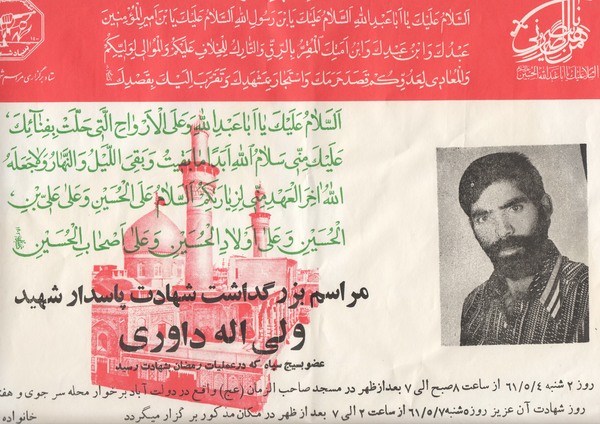 اَلسَّلامُ عَلَيْكَ يا اَباعَبْدِاللهِ اَلسَّلامُ عَلَيْكَ يَابْنَ رَسُولِ اللهِ اَلسَّلامُ عَلَيْكَ يَابْنَ اَميرِالْمُؤْمِنينَ
عَبْدُكَ وَابْنُ عَبْدِكَ وَابْنُ اَمَتِكَ الْمُقِرُّ بِالرِّقِّ وَالتّارِكُ لِلْخِلافِ عَلَيْكُمْ وَالْمُوالى لِوَلِيِّكُمْ
وَالْمُعادى لِعَدُوِّكُمْ قَصَدَ حَرَمَكَ وَاسْتَجارَ بِمَشْهَدِكَ وَتَقَرَّبَ اِلَيْكَ بِقَصْدِكَ
السلام علیک یا اباعبدالله الحسین
ستاد برگزاری مراسم
اَلسَّلامُ عَلَيْكَ يا اَباعَبْدِاللهِ وَعَلَى الْاَرْواحِ الَّتى حَلَّتْ بِفِنآئِكَ
عَلَيْكَ مِنّى سَلامُ اللهِ اَبَداً ما بَقيتُ وَبَقِىَ اللَّيْلُ وَالنَّهارُ وَلاجَعَلَهُ
اللهُ اخِرَ الْعَهْدِ مِنّى لِزِيارَتِكُمْ اَلسَّلامُ عَلَى الْحُسَيْنِ وَعَلى عَلِىِّ بْنِ
الْحُسَيْنِ وَعَلى اَوْلادِ الْحُسَيْنِ وَعَلى اَصْحابِ الْحُسَيْنِ
مراسم بزرگداشت شهادت پاسدار شهید
ولی اله داوری
عضو بسیج سپاه که در عملیات رمضان شهادت رسید
روز ۲ شنبه ۶۱/۵/۴ از ساعت ۸ صبح الی ۷ بعدازظهر در مسجد صاحب الزمان (عج) واقع در دولت آباد برخوار محله سر جوی و هفت
روز شهادت آن عزیز روز ۵شنبه ۶۱/۵/۷ از ساعت ۲ الی ۷ بعدازظهر در مکان مذکور برگزار میگردد
خانواده